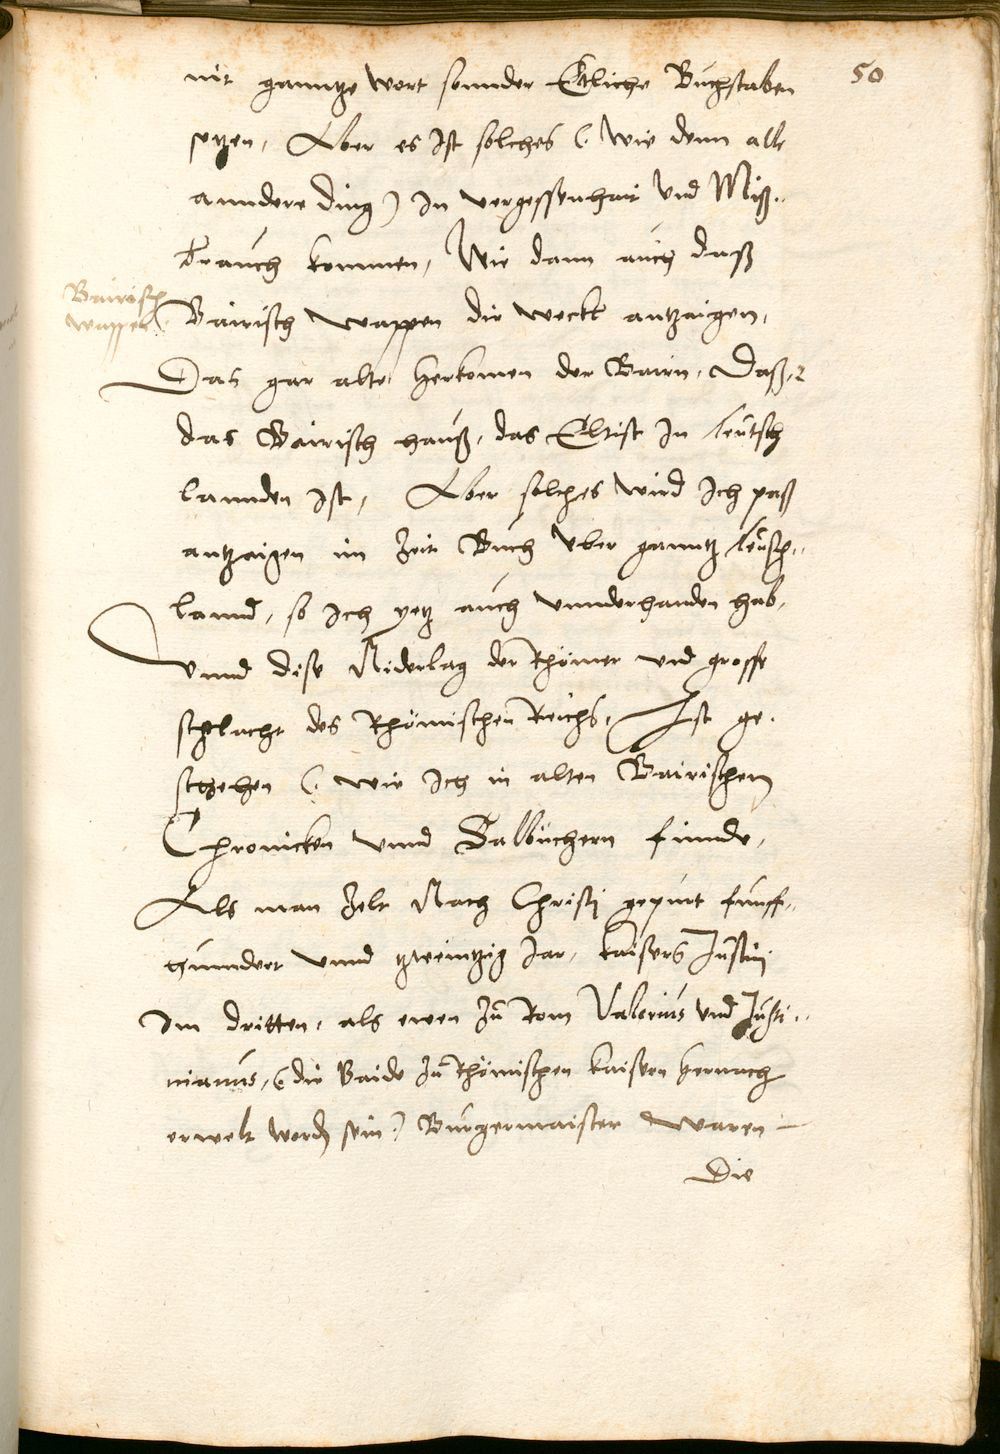 50
nit ganntze wort sonnder Etliche Buchstaben
setzen, Aber es ist solches (: wie denn alle
anndere ding) In vergessenhait vnd Miß..
brauch kommen, Wie dann auch daß
Bairisch
wappen
Bairisch wappen die weckt antzaigen,
Das gar alte herkomen der Bairn, Daß
das Bairisch hauß, das Eltist In teutsch
lannden ist, Aber solches wird Ich paß
antzaigen im Zeit Buch vber ganntz teusch..
lannd, so Ich yetz auch vnnderhanden hab,
Vnnd dise Niderlag der Rhömer vnd grosse
schlacht des Rhömischen Reichs, Ist ge.
schehen (: wie Ich in alten Bairischen
Chronicken vnnd Salbüchern finnde,
Als man Zelt Nach Christi gepurt funff..
hunndert vnnd tzweintzig Jar, kaisers Justini
Im dritten, als ewen zu Rom Valerius vnd Justi..
nianus, (: die Baide zu Rhömischen kaisern hernach
erwelt word sein:) Burgermaister waren
Die